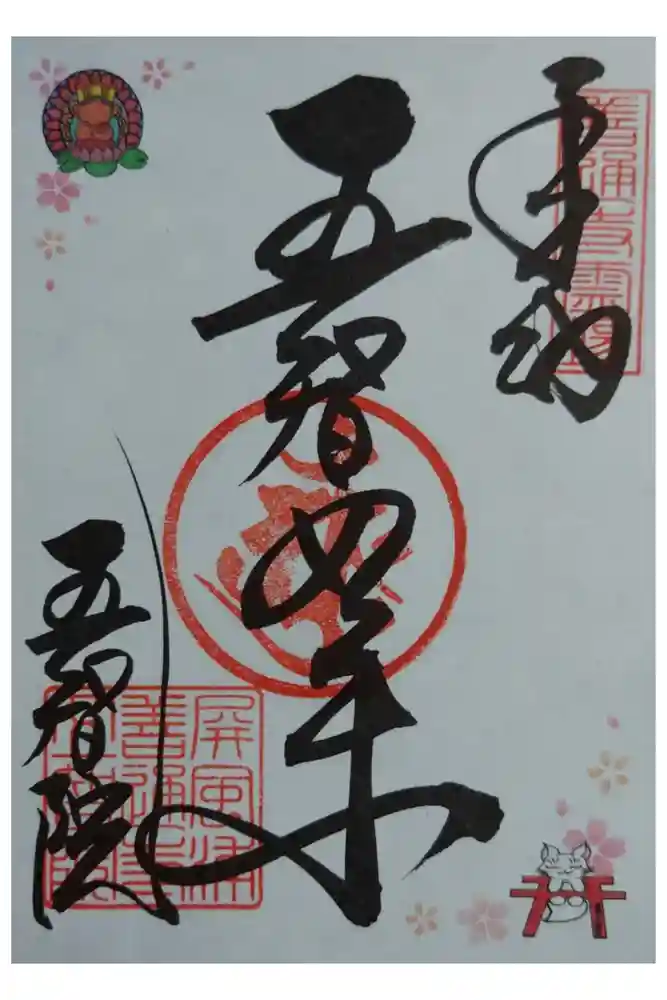 奉納
善通寺霊場
五智如来
五智院
屏風浦
善通寺